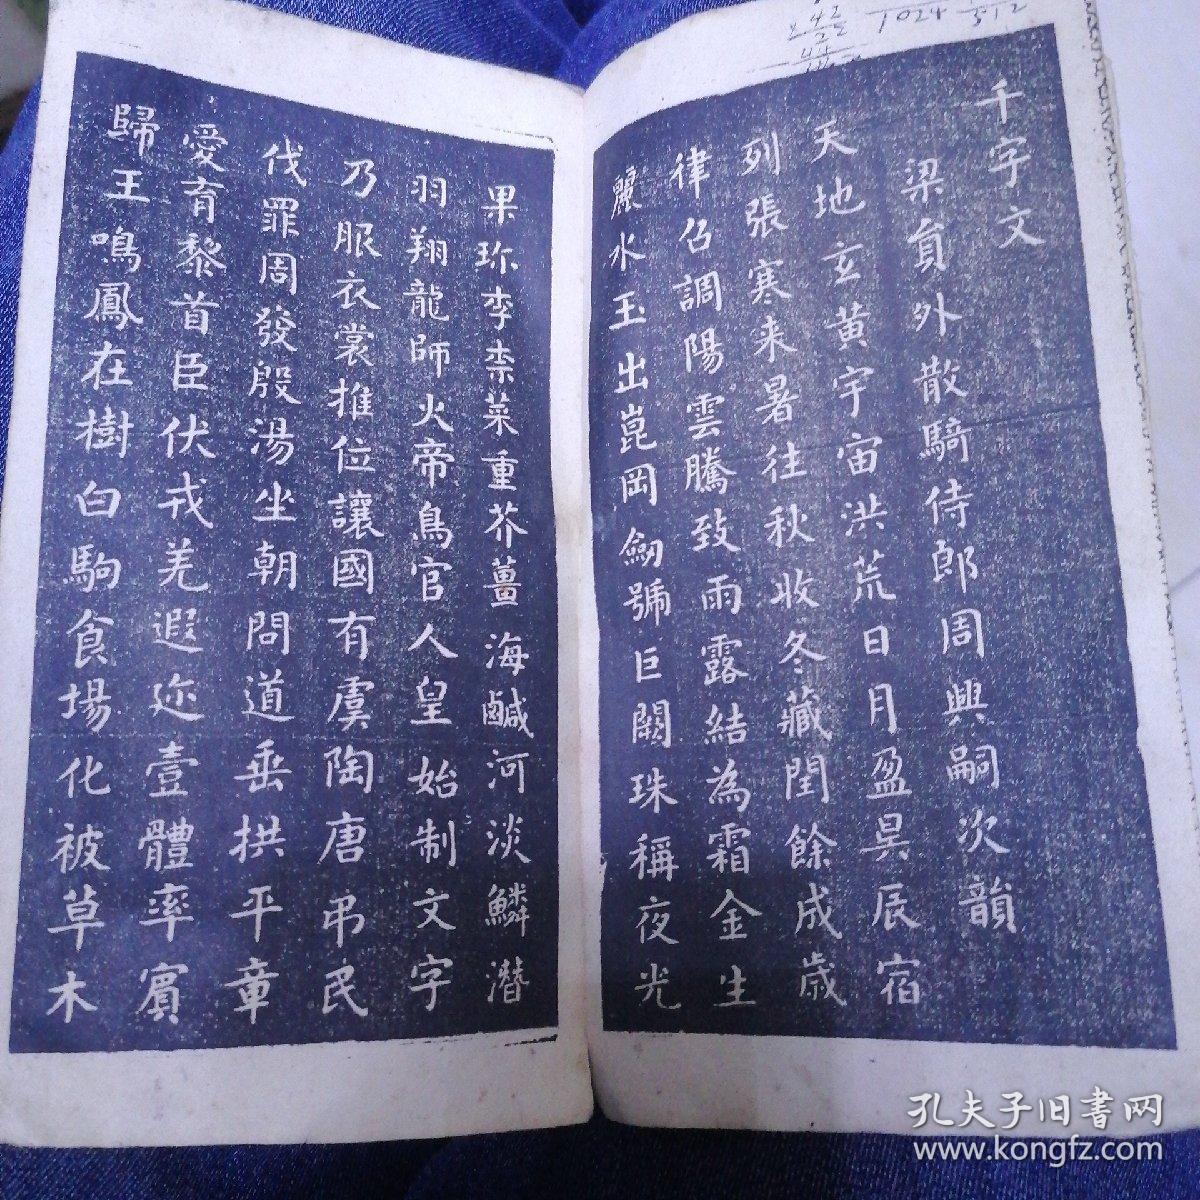 千字文
梁貟外散騎侍郎周興嗣次韻
天地玄黄宇宙洪荒日月盈昃辰宿
列張寒来暑往秋收冬藏閏餘成歲
律召調陽雲騰致雨露結為霜金生
麗水玉出崑岡劒號巨闕珠稱夜光
果珎李柰菜重芥薑海鹹河淡鱗潛
羽翔龍師火帝鳥官人皇始制文字
乃服衣裳推位讓國有虞陶唐弔民
伐罪周發殷湯坐朝問道垂拱平章
愛育黎首臣伏戎羌遐迩壹體率賓
歸王鳴鳳在樹白駒食場化被草木
1024
512
孔夫子旧書网
www.kongfz.com